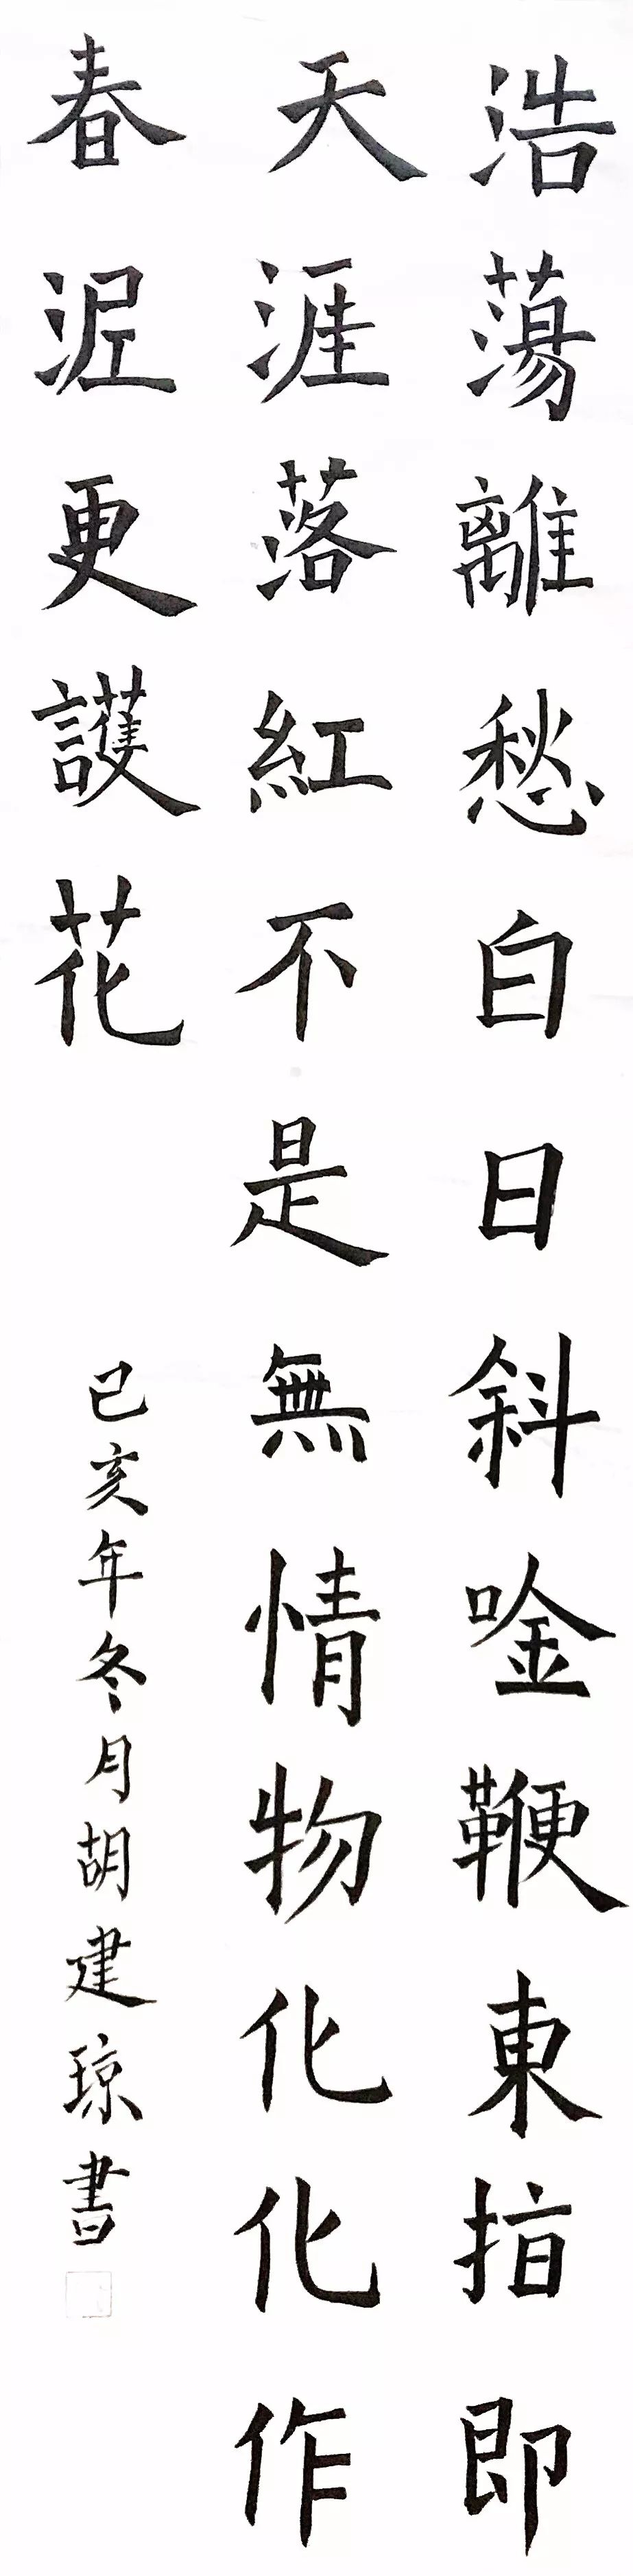 浩蕩離愁白日斜唫鞭東指即
天涯落紅不是無情物化化作
春泥更護花
己亥年冬月胡建琼書